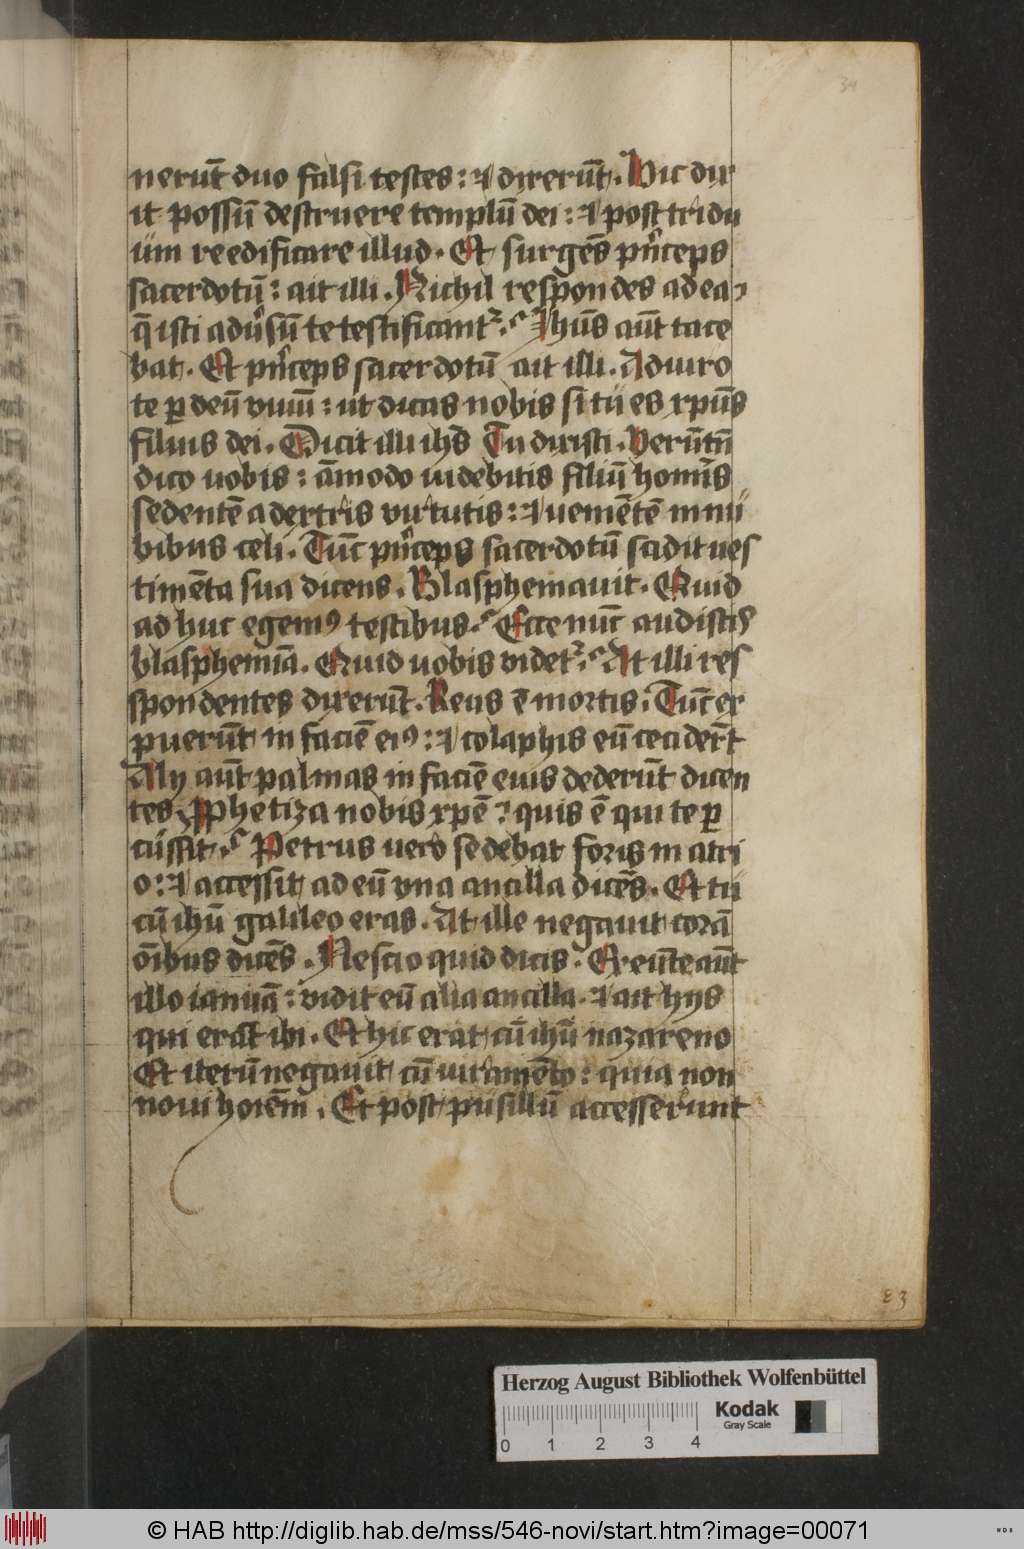 34
nerūt duo falsi testes: ⁊ dixerūt. Hic dix
it possū destruere templū dei: ⁊ post tridu
üm reedificare illud. Et surgēs pⁱnceps
sacerdotū: ait illi. Nichil respondes ad ea
q̄ isti adūsū te testificantᷣ. Ihūs aūt tace
bat. Et pⁱnceps sacerdotū ait illi. Adiuro
te ꝑ deū viuū: ut dicas nobis si tü es xp̄us
filius dei. Dicit illi ihs̄ Tu dixisti. Verūtn̄
dico uobis: āmodo uidebitis filiū homīs
sedentē a dextris virtutis: ⁊ uenientē in nü
bibus celi. Tūc pⁱnceps sacerdotū scidit ues
timēta sua dicens. Blasphemauit. Quid
ad huc egemꝰ testibus. Ecce nūc audistis
blasphemiā. Quid uobis videtᷣ. At illi res
spondentes dixerūt. Reus ē mortis. Tūc ex
puerūt in faciē eiꝰ: ⁊ colaphis eū cecider̄t
Alij aūt palmas in faciē euis dederūt dicen
tes. Ꝓphetiza nobis xpē: quis ē qui te ꝑ
cüssit. Petrus uero sedebat foris in atri
o: ⁊ accessit ad eū vna ancilla dicēs. Et tü
cū ihū galileo eras. At ille negauit corā
oībus dicēs. Nescio quid dicis. Exeūte aūt
illo ianuā: vidit eū alia ancilla. ⁊ ait hijs
qui erāt ibi. Et hic erat cū ihū nazareno
Et iterū negauit cū iuramēto: quia non
noui hoiem̄. Et post püsillū accesserunt
83
Herzog August Bibliothek Wolfenbüttel
Kodak
Gray Scale
0 1 2 3 4
© HAB http://diglib.hab.de/mss/546-novi/start.htm?image=00071